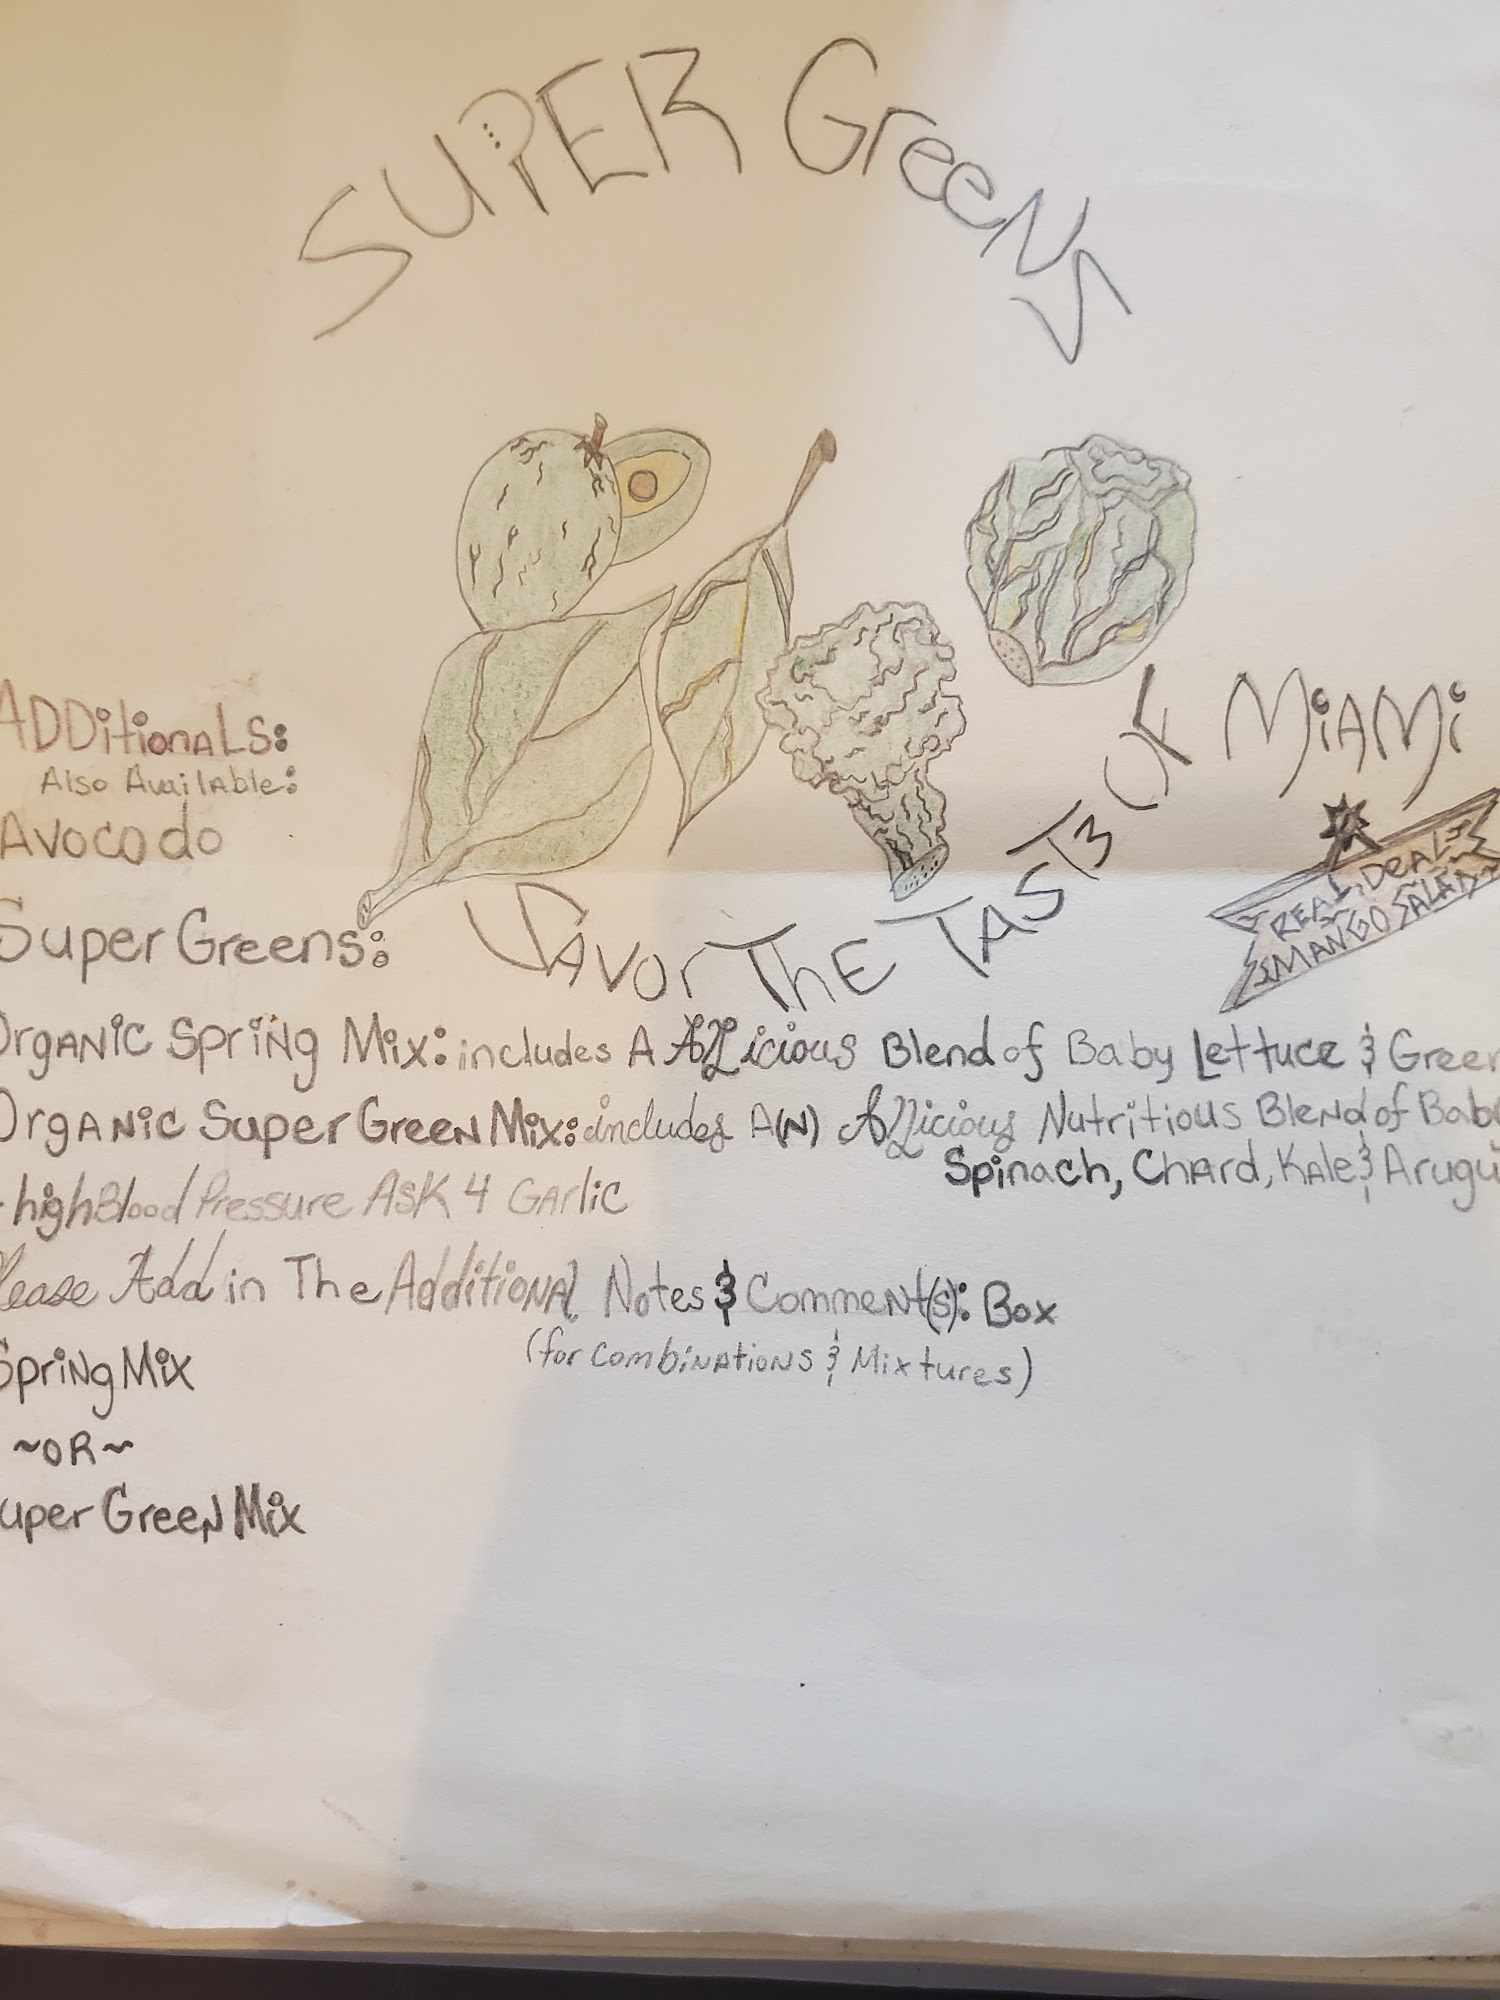 SUPER GreeNS
ADDitionaLS:
Also Available:
Avocado
SAVOr ThE TASTE OF MiAMi
REAL DEAL
MANGO SALAD
Super Greens:
OrgANiC Spring Mix: includes A ALicious Blend of Baby Lettuce & Green
OrgANiC Super GreeN Mix: includes A(N) ALicious Nutritious Blend of Baby
Spinach, Chard, Kale & Arugu
high Blood Pressure ASK 4 GArlic
Please Add in The AdditioNAL Notes & CommeNt(s): Box
(for CombiNAtioNS & Mixtures)
SpriNg Mix
~OR~
uper GreeN Mix